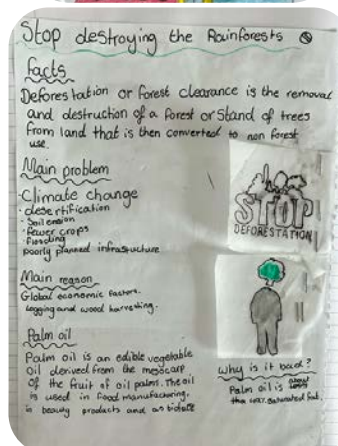 Stop destroying the Rainforests
Facts
Deforestation or forest clearance is the removal
and destruction of a forest or stand of trees
from land that is then converted to non forest
use.
Main problem
·Climate change
·desertification
·Soil erosion
·fewer crops
·flooding
poorly planned infrastructure
STOP
DEFORESTATION
Main reason
Global economic factors.
Logging and wood harvesting.
Palm oil
Palm oil is an edible vegetable
oil derived from the mesocarp
of the fruit of oil palms. The oil
is used in food manufacturing.
in beauty products and as
Why is it bad?
Palm oil is
saturated fat.